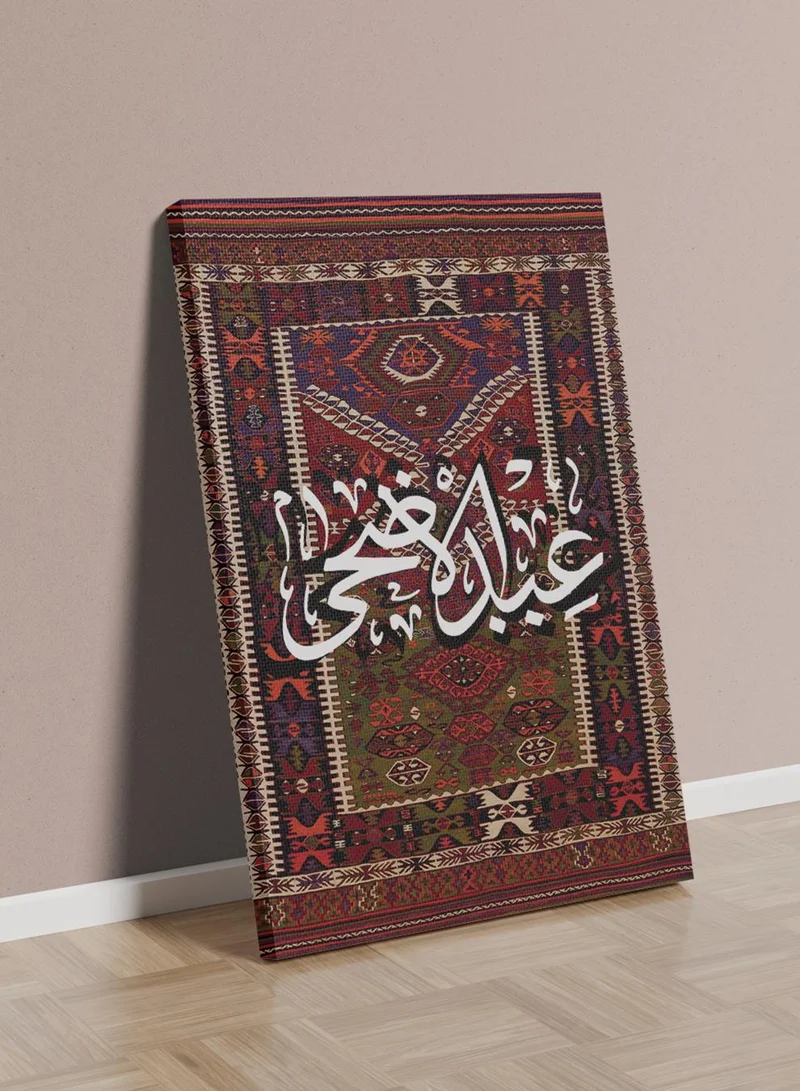 عيد الاضحى